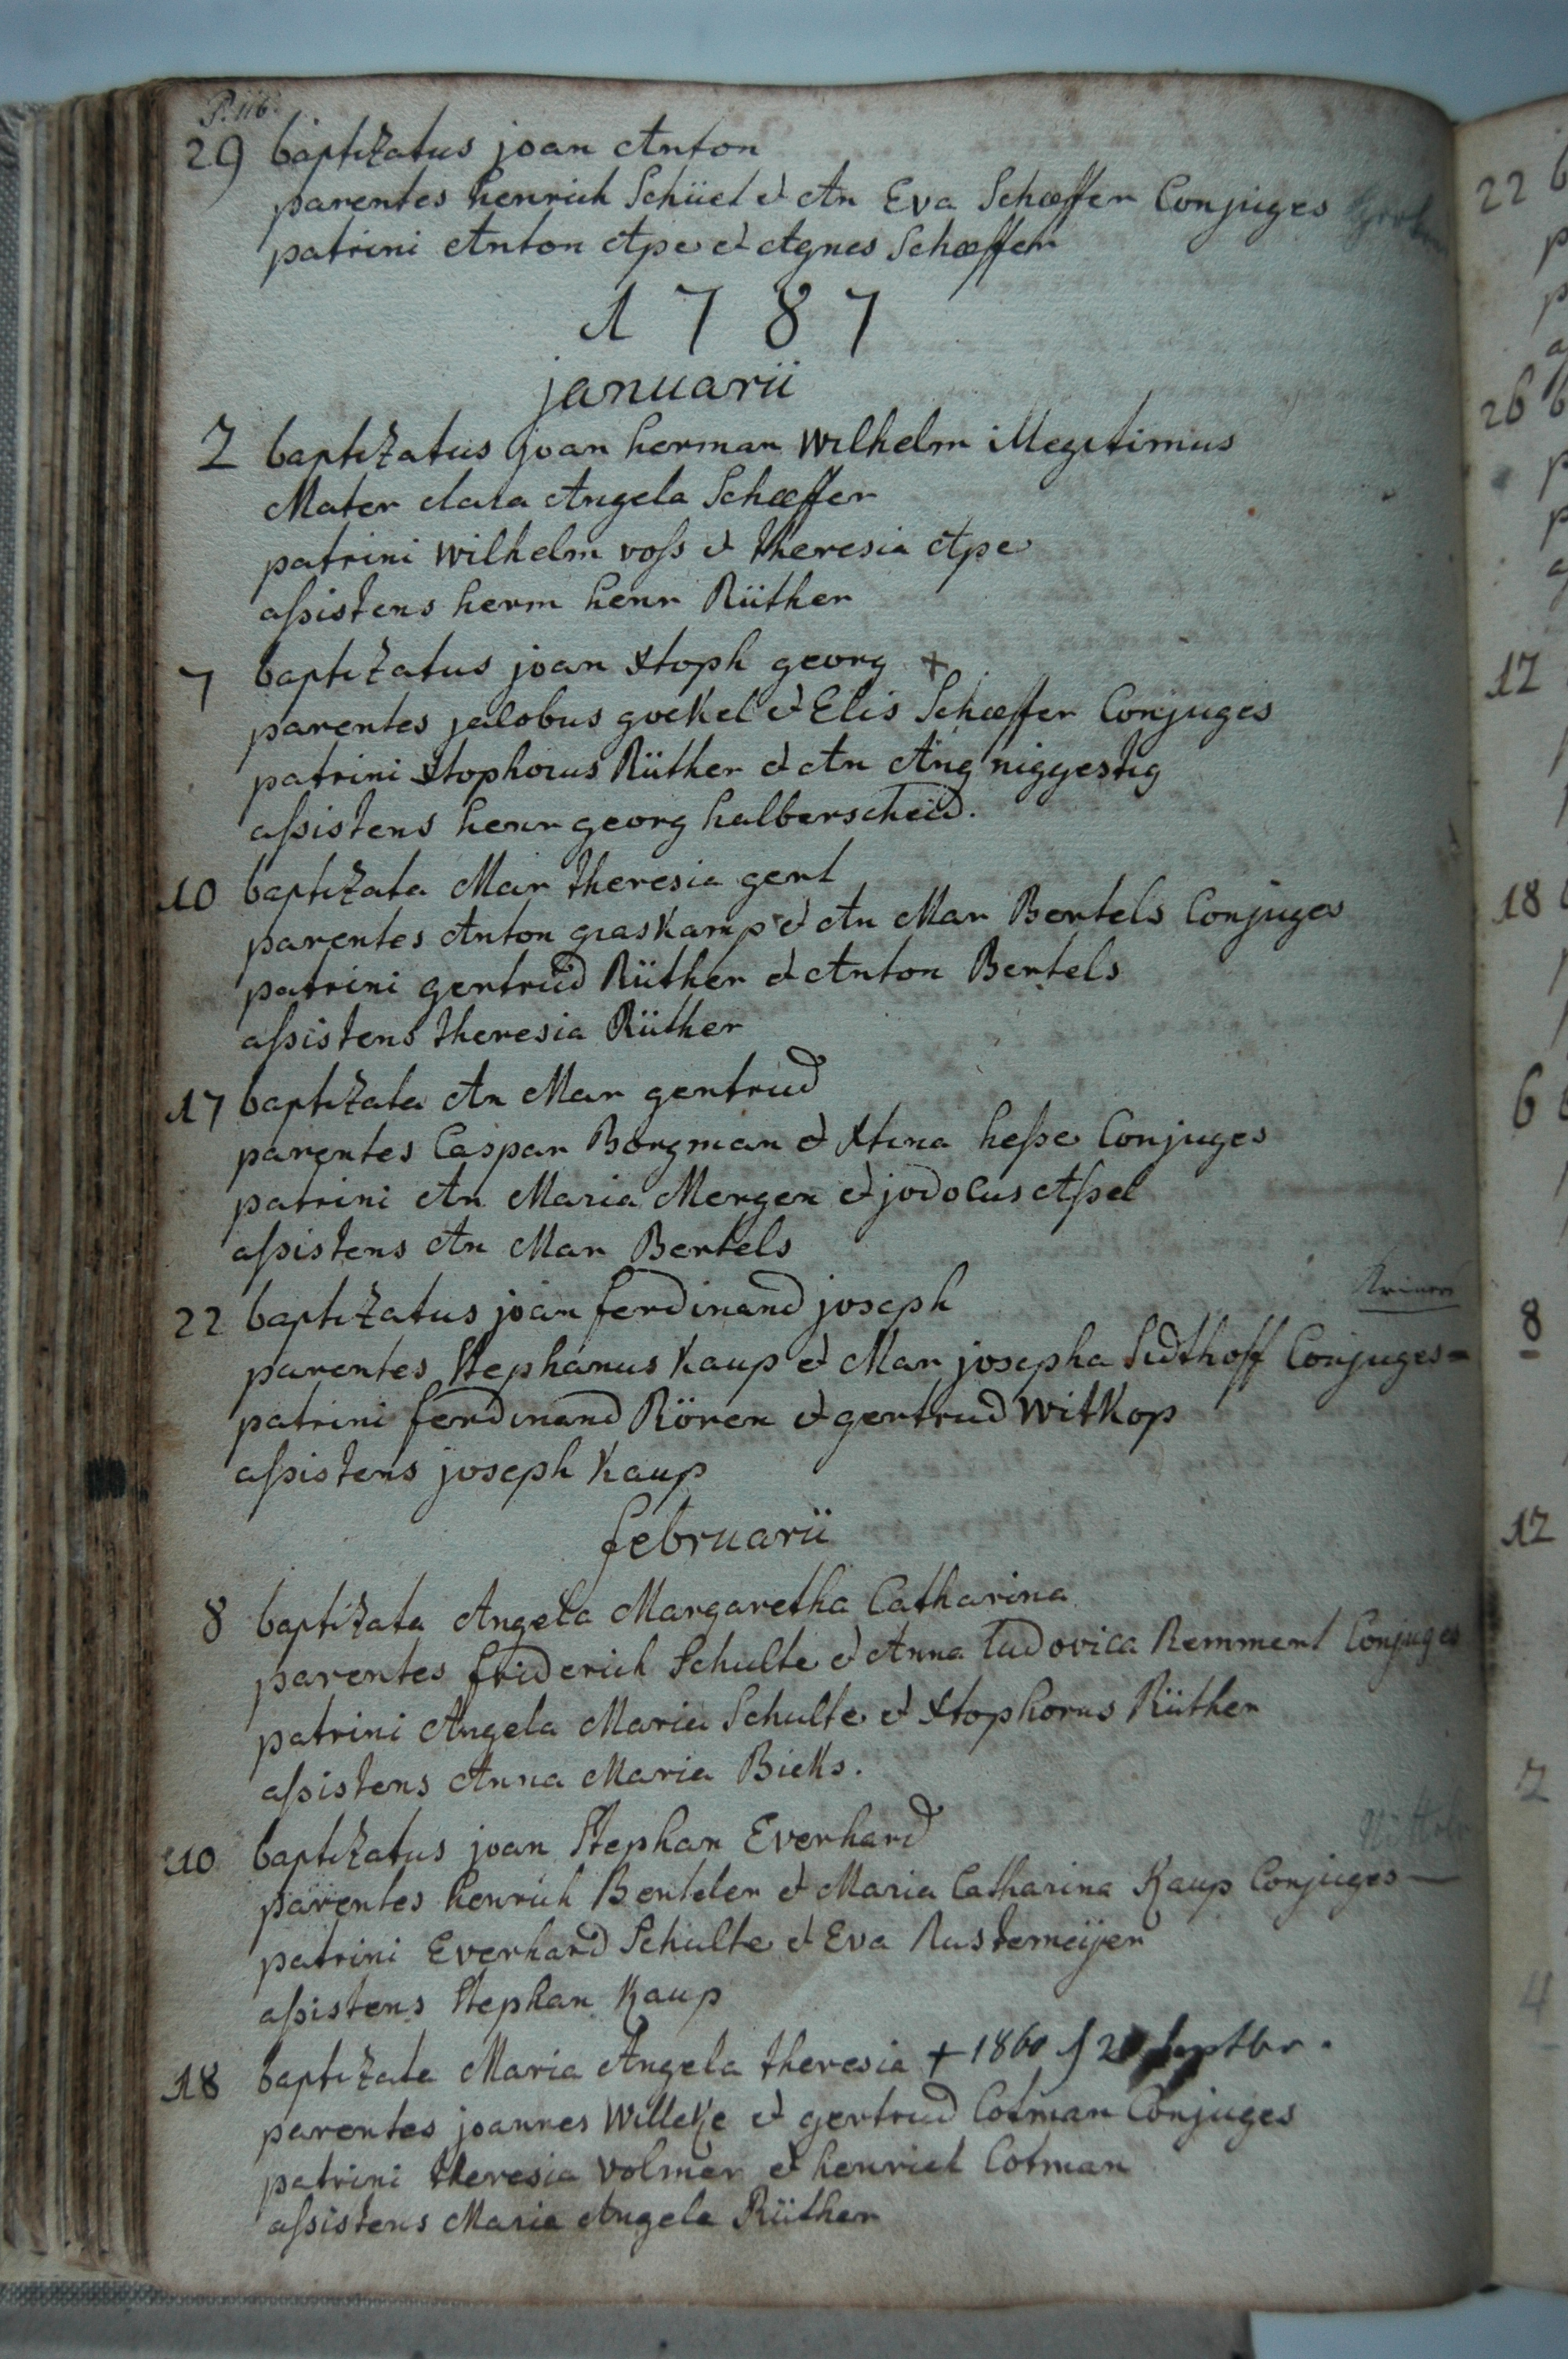 P. 116.
29 baptizatus joan Anton
parentes henrich Schüel et An Eva Schæffer Conjuges
patrini Anton Ape et Agnes Schæffer
1787
januarii
2 baptizatus joan herman Wilhelm illegitimus
Mater clara Angela Schæffer
patrini wilhelm voss et theresia Ape
assistens herm henr Rüther
7 baptizatus joan Xtoph georg +
parentes jacobus gockel et Elis Schæffer Conjuges
patrini Xtophorus Rüther et An Ang niggestig
assistens henr georg halberscheid.
10 baptizata Mar theresia gert
parentes Anton graskamp et An Mar Bertels Conjuges
patrini gertrud Rüther et Anton Bertels
assistens theresia Rüther
17 baptizata An Mar gertrud
parentes Caspar Borgman et Xtina hesse Conjuges
patrini An Maria Mergen et jodocus Assel
assistens An Mar Bertels
22 baptizatus joan ferdinand joseph
parentes Stephanus Kaup et Mar josepha Sudthoff Conjuges
patrini ferdinand Rören et gertrud Witkop
assistens joseph Kaup
februarii
8 baptizata Angela Margaretha Catharina
parentes friderich Schulte et Anna ludovica Remmert Conjuges
patrini Angela Maria Schulte et Xtophorus Rüther
assistens Anna Maria Bieks.
10 baptizatus joan Stephan Everhard
parentes henrich Benteler et Maria Catharina Kaup Conjuges
patrini Everhard Schulte et Eva Rustemeijer
assistens Stephan Kaup
18 baptizata Maria Angela theresia + 1860 septbr.
parentes joannes Willeke et gertrud Cotman Conjuges
patrini theresia volmer et henrich Cotman
assistens Maria Angela Rüther
22
26
17
18
6
8
12
2
4